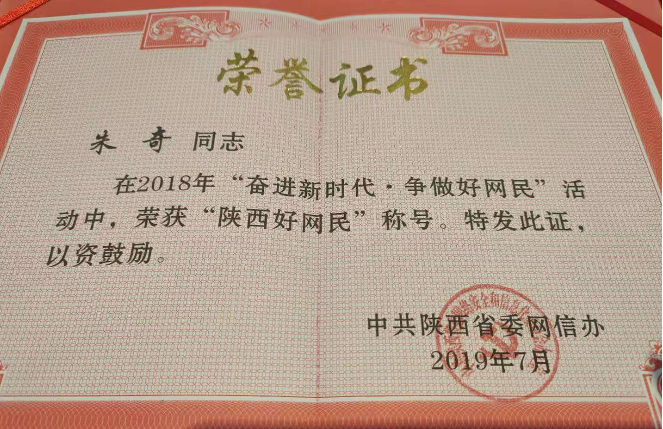 荣誉证书
朱奇 同志
在2018年“奋进新时代·争做好网民”活
动中，荣获“陕西好网民”称号。特发此证，
以资鼓励。
中共陕西省委网信办
2019年7月